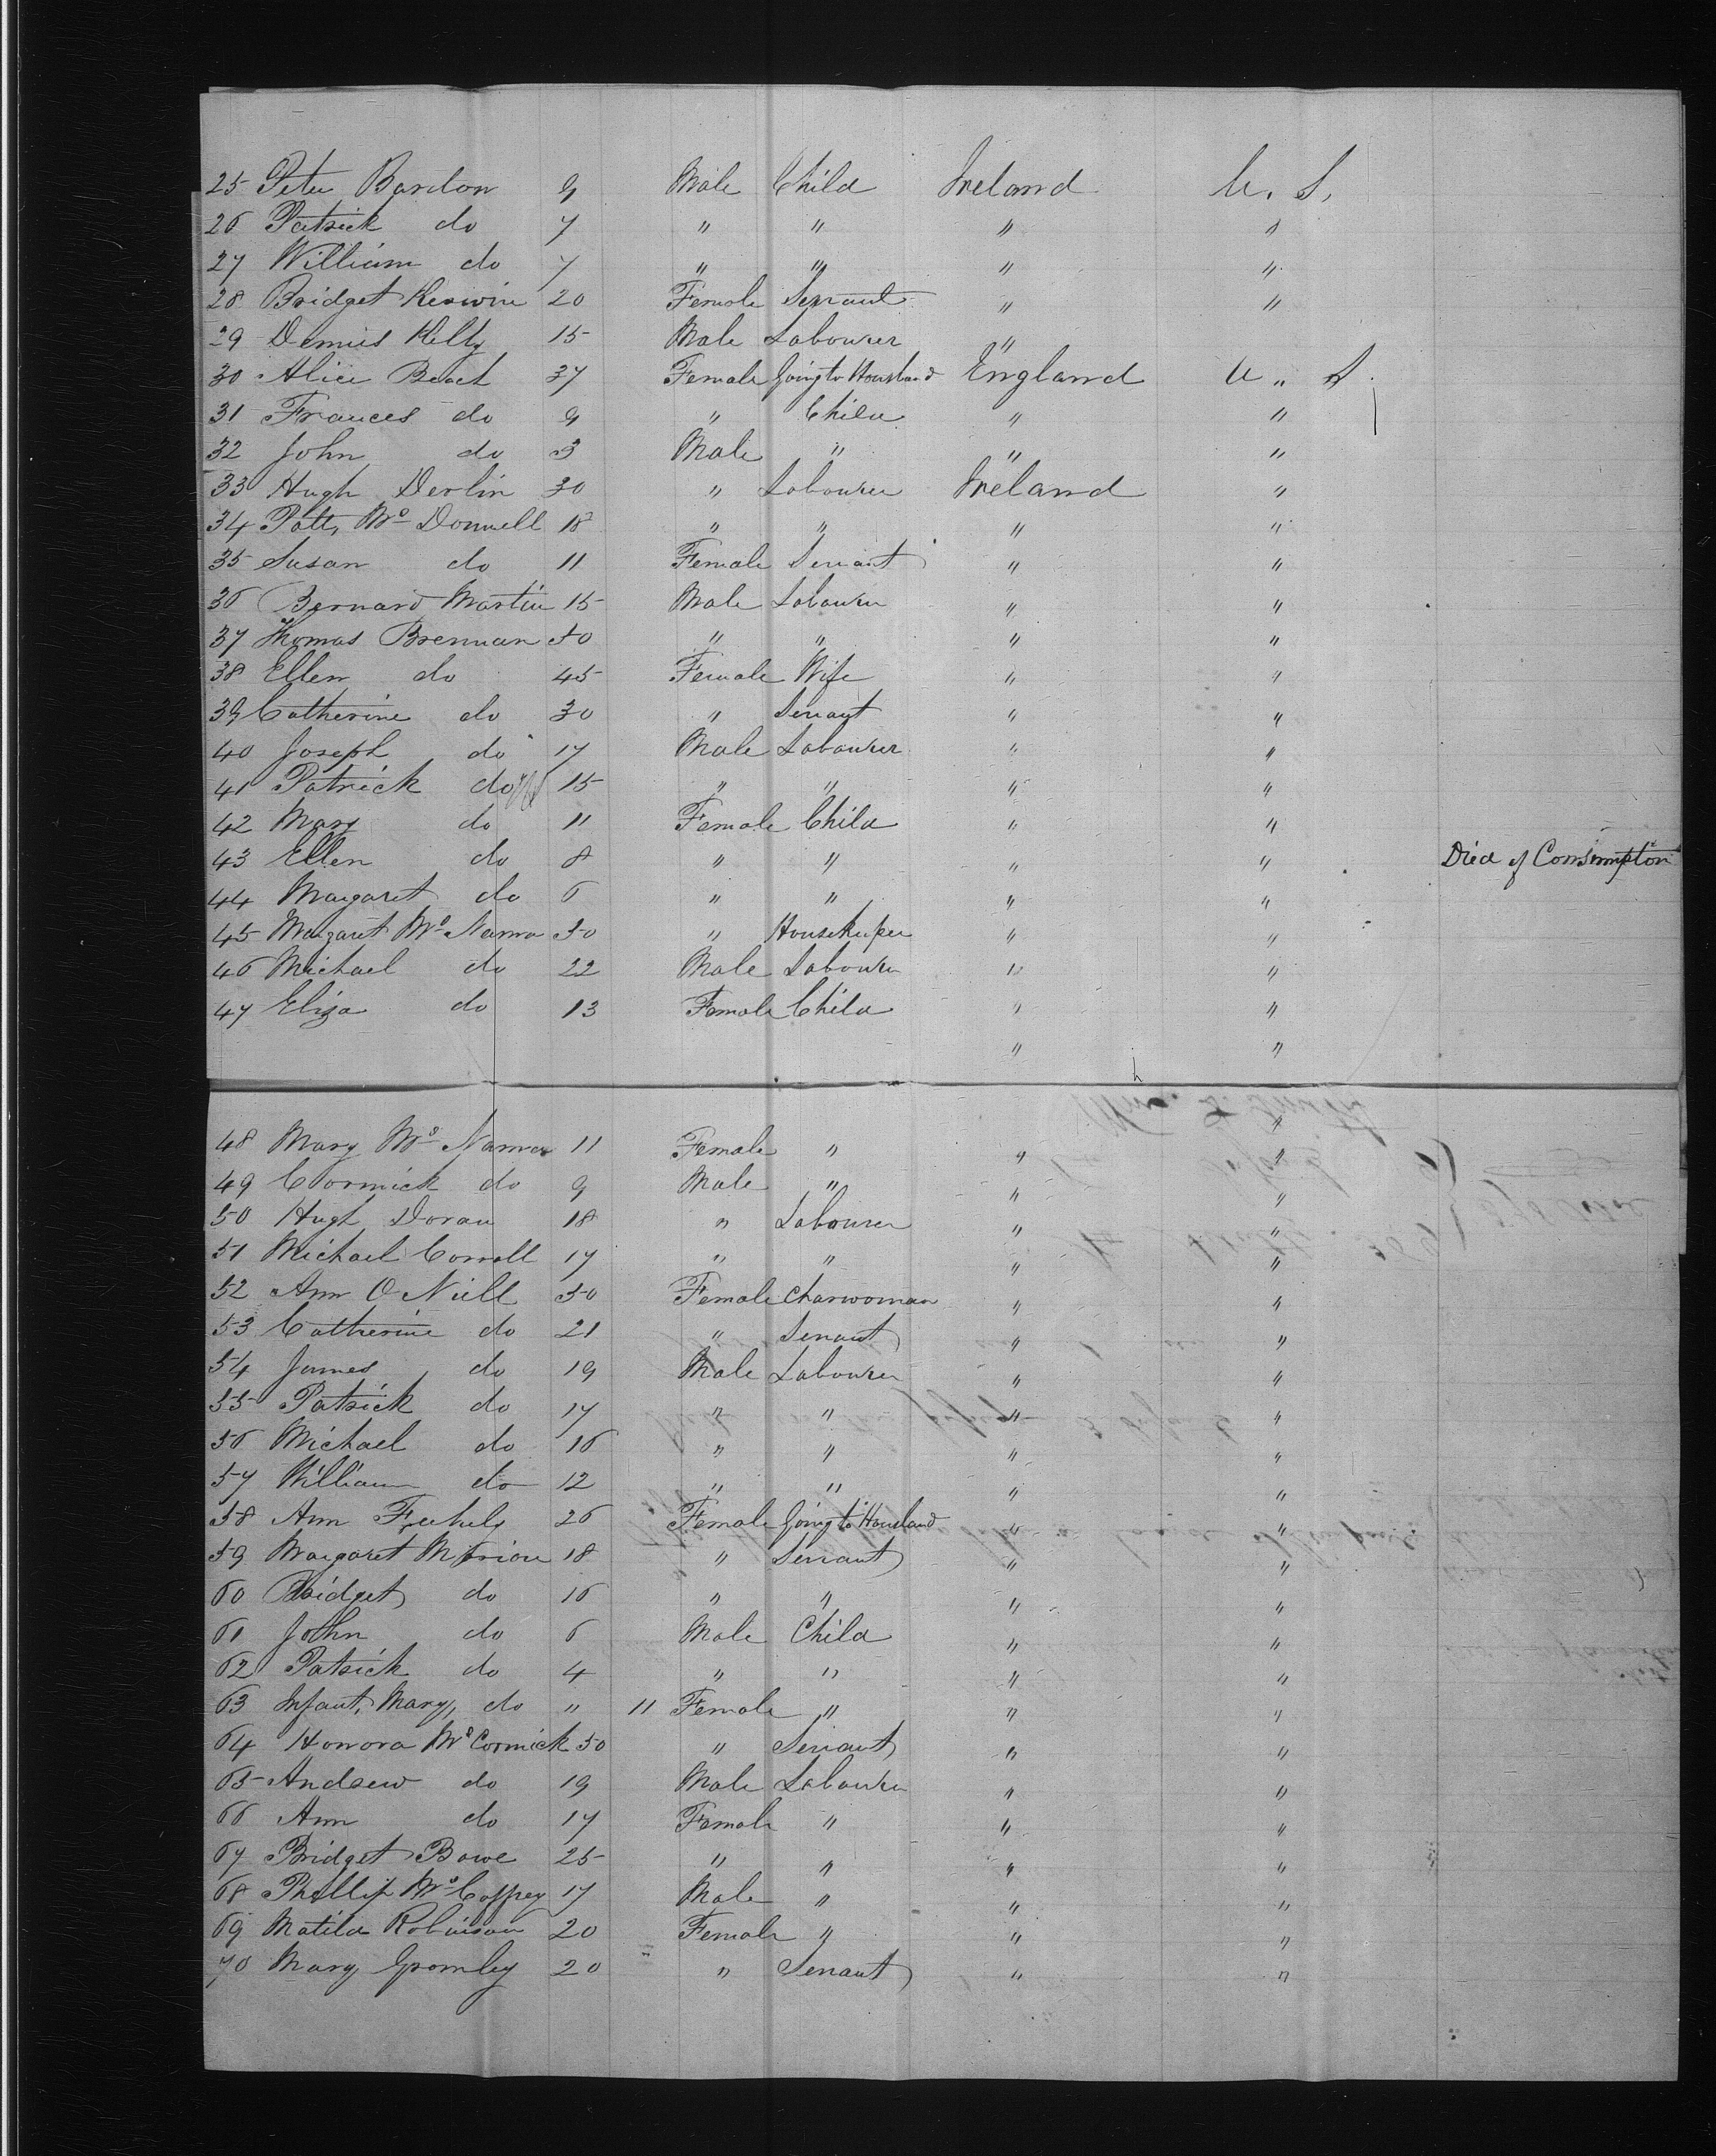 25 Peter Bardon 9 Male Child Ireland U. S.
26 Patrick do 7 " " " "
27 William do 7 " " " "
28 Bridget Kerwin 20 Female Servant " "
29 Dennis Kelly 15 Male Labourer "
30 Alice Beach 37 Female Going to Housband England U " S.
31 Frances do 9 " Child " "
32 John do 3 Male " " "
33 Hugh Devlin 30 " Labourer Ireland "
34 Patt, Mc Donnell 18 " " " "
35 Susan do 11 Female Servant " "
36 Bernard Martin 15 Male Labourer " "
37 Thomas Brennan 50 " " " "
38 Ellen do 45 Female Wife " "
39 Catherine do 30 " Servant " "
40 Joseph do 17 Male Labourer " "
41 Patrick do 15 " " " "
42 Mary do 11 Female Child " "
43 Ellen do 8 " " " " Died of Consumption
44 Margaret do 6 " " " "
45 Margaret Mc Namra 50 " Housekeeper " "
46 Michael do 22 Male Labourer " "
47 Eliza do 13 Female Child " "
" "
"
48 Mary Mc Namra 11 Female " " "
49 Cormick do 9 Male " " "
50 Hugh Doran 18 " Labourer " "
51 Michael Corroll 17 " " " "
52 Ann O Neill 50 Female Charwoman " "
53 Catherine do 21 " Servant " "
54 James do 19 Male Labourer " "
55 Patrick do 17 " " " "
56 Michael do 16 " " " "
57 William do 12 " " " "
58 Ann 26 Female Going to Housband " "
59 Margaret 18 " Servant " "
60 Bridget do 16 " " " "
61 John do 6 Male Child " "
62 Patrick do 4 " " " "
63 Infant, Mary, do " 11 Female " " "
64 Honora Mc Cormick 50 " Servant " "
65 Andrew do 19 Male Labourer " "
66 Ann do 17 Female " " "
67 Bridget Bowe 25 " " " "
68 Phillip Mc Caffrey 17 Male " " "
69 Matilda Robinson 20 Female " " "
70 Mary Gromley 20 " Servant " "